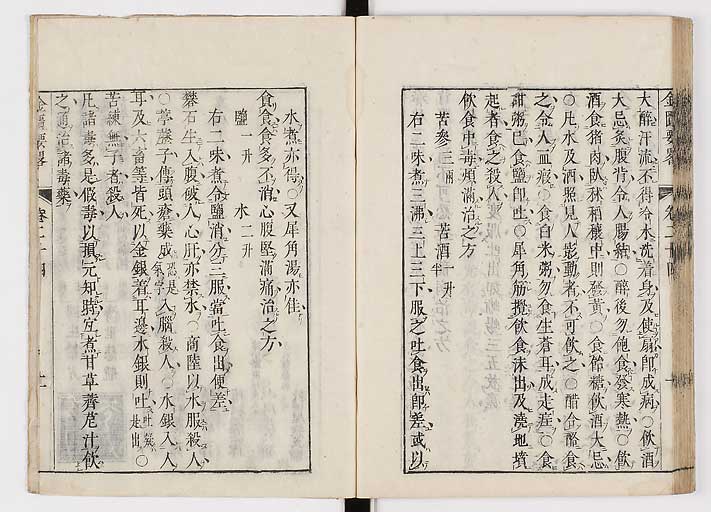 金匱要略 卷二十四
大醉汗流不得冷水洗着身及使扇即成病○飲酒
大忌灸腹背令人腸結○醉後勿飽食發寒熱○飲
酒食猪肉臥秫稻穰中則發黃○食飴糖飲酒大忌
○凡水及酒照見人影動者不可飲之○醋合酪食
之令人血瘕○食白米粥勿食生蒼耳成走疰○食
甜粥已食鹽即吐○犀角筯攪飲食沫出及澆地墳
起者食之殺人
飲食中毒煩滿治之方
苦參三兩 苦酒一升半
右二味煮三沸三上三下服之吐食出即差或以
水煮亦得○又犀角湯亦佳
貪食食多不消心腹堅滿痛治之方
鹽一升 水三升
右二味煮令鹽消分三服當吐食出便差
礬石生入腹破人心肝亦禁水○商陸以水服殺人
○葶藶子傅頭瘡藥成入腦殺人○水銀入人
耳及六畜等皆死以金銀着耳邊水銀則吐○
苦練無子者殺人
凡諸毒多是假毒以損元知時宜煮甘草薺苨汁飲
之通治諸毒藥
金匱要略 卷二十四